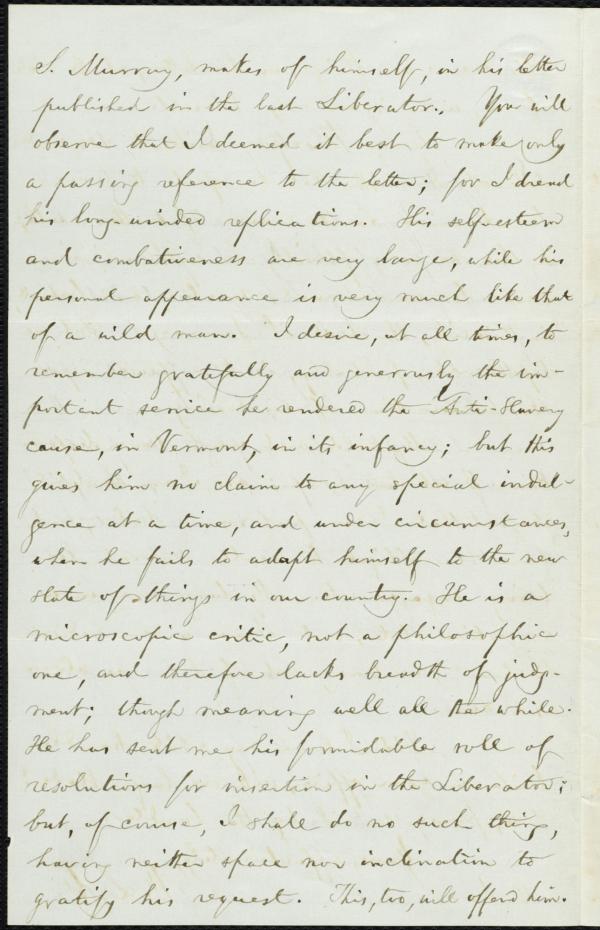 S. Murray, makes of himself, in his letter
published in the last Liberator. You will
observe that I deemed it best to make only
a passing reference to the letter; for I dread
his long-winded replications. His self-esteem
and combativeness are very large, while his
personal appearance is very much like that
of a wild man. I desire, at all times, to
remember gratefully and generously the im-
portant service he rendered the Anti-Slavery
cause, in Vermont, in its infancy; but this
gives him no claim to any special indul-
gence at a time, and under circumstances,
when he fails to adapt himself to the new
state of things in our country. He is a
microscopic critic, not a philosophic
one, and therefore lacks breadth of judg-
ment; though meaning well all the while.
He has sent me his formidable roll of
resolutions for insertion in the Liberator;
but, of course, I shall do no such thing,
having neither space nor inclination to
gratify his request. This, too, will offend him.